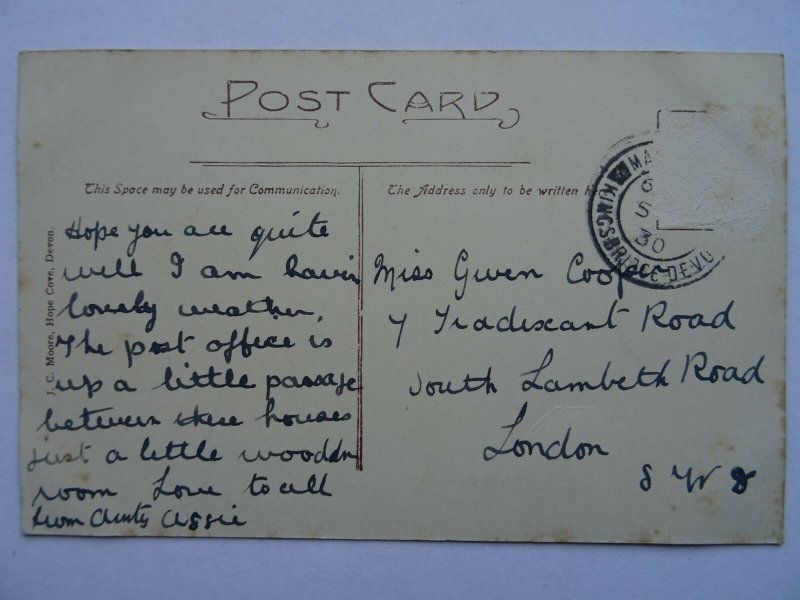 POST CARD
This Space may be used for Communication.
The Address only to be written
J. C. Moore, Hope Cove, Devon.
KINGSBRIDGE DEVO
MA
6
S
30
Hope you are quite
well I am havin
lovely weather,
The post office is
up a little passage
between these houses
just a little wooden
room Love to all
from Aunty
Miss Gwen Cooper
7 Tradescant Road
South Lambeth Road
London
S W 8